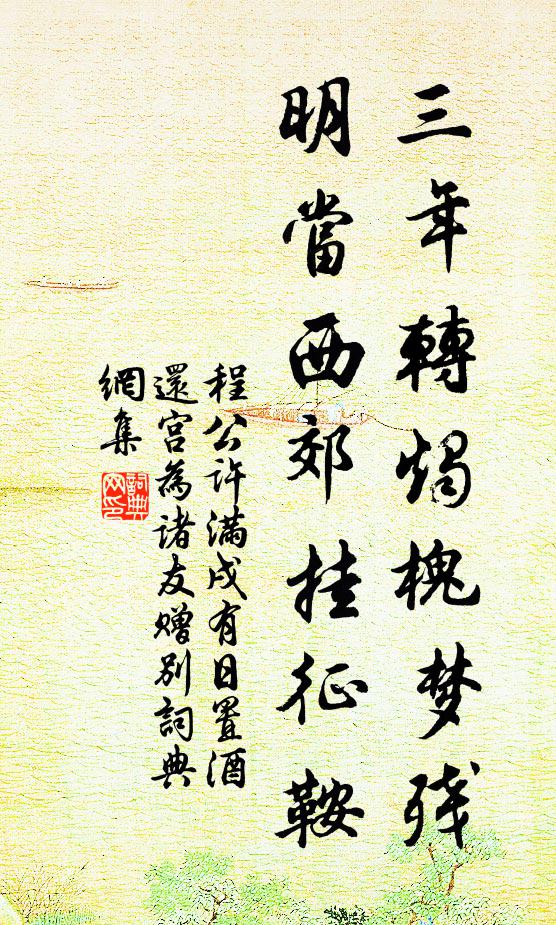 三年轉燭槐梦残
明當西郊挂征鞍
程公许满戍有日置酒
還宫為诸友赠别詞典
網集
詞典网印